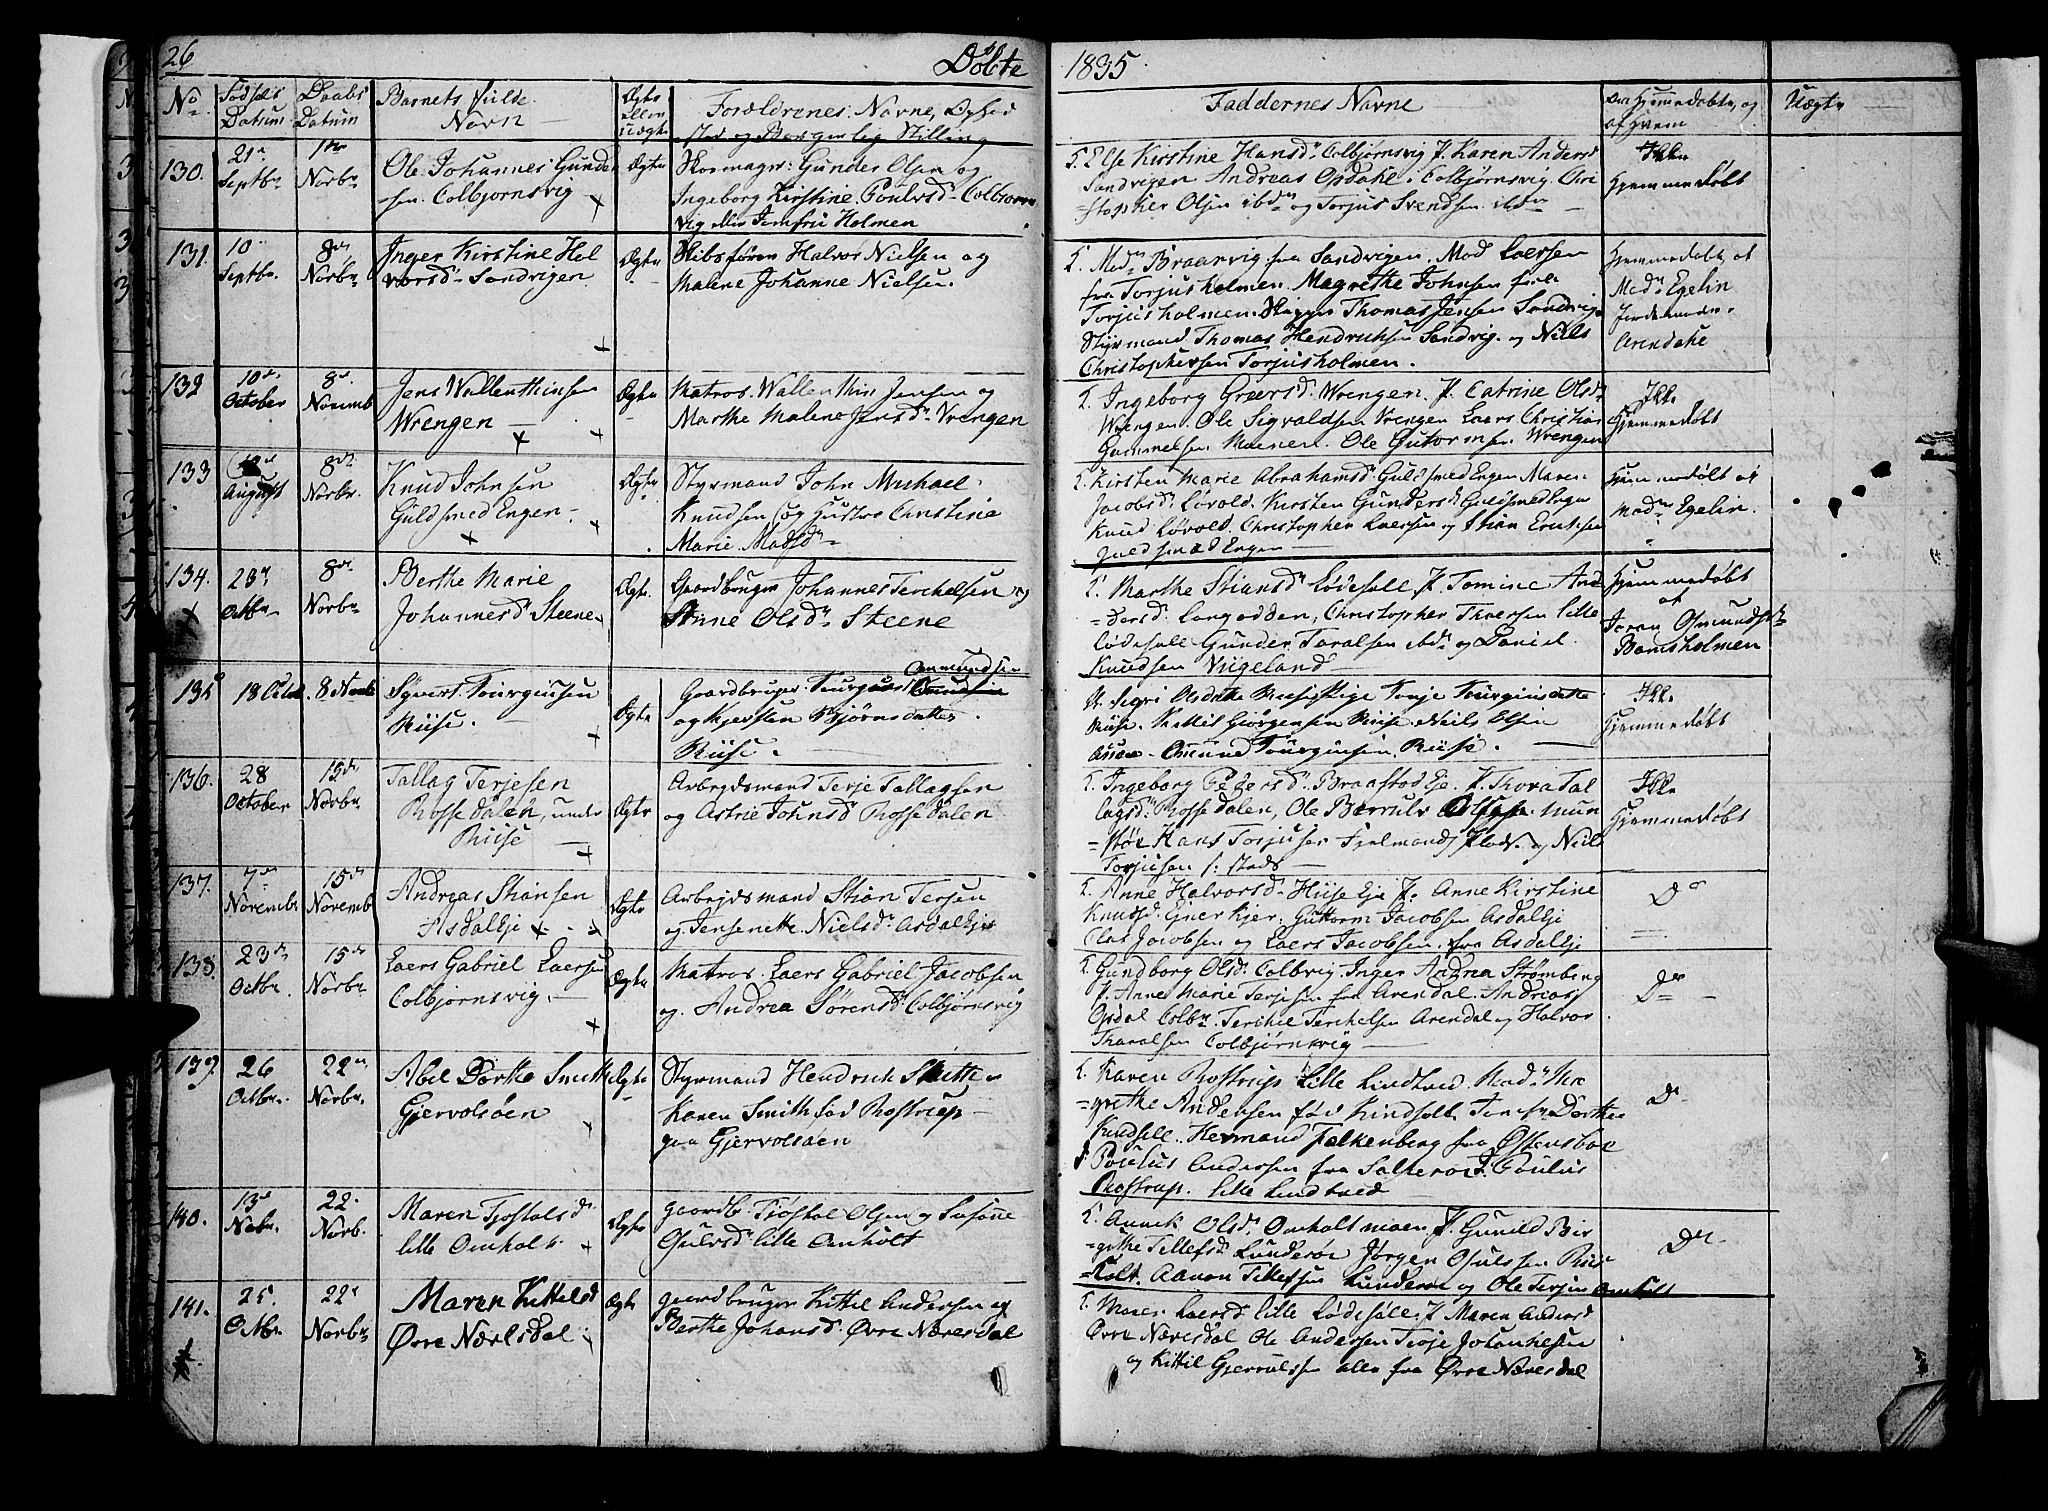 26 Döbte 1835
No Fødsels Datum Daabs Datum Barnets fulde Navn Ægte eller uægte Forældrenes Navne, Opholdsted og Borgerlig Stilling Faddernes Navne Om Hjemmedøbt, og af hvem Uægte
130. 21 Septbr 1ste Novbr
Ole Johannes Gunder
sen. Colbjørnsvig
Ægte
Gunder Olsen og
Ingeborg Kirstine Poulsd Colbjørn
vig eller Jomfru Holmen
Else Kirstine Hansd. Colbjørnsvig P. Karen Anders
Sandvigen Andreas Opdahl. Colbjørnsvig. Chri
stopher Olsen ibdm og Torjus Svendsen ibdm
Ikke
hjemmedøbt
131. 10 Septbr. 8de Novbr
Inger Kirstine Hal
vorsd. Sandvigen
Ægte
Skibsfører Halvor Nielsen og
Malene Johanne Nielsen.
Mad. Braarvig fra Sandvigen. Mad Laersen
fra Torjusholmen. Magrethe Johnsen fra
Torjusholmen. Skipper Thomas Jensen Sandvig
Styrmand Thomas Hendrichsen Sandvig. og Niels
Christophersen Torjusholmen.
Hjemmedøbt af
Mad. Egelin
Arendahl
132 10de October 8de Novemb
Jens Wallenthinsen
Wrengen
Ægte
Matros. Wallenthin Jensen og
Marthe Malene Jensd. Vrengen
Ingeborg Greersd. Wrengen. P. Catrine Olsd.
Wrengen. Ole Sigvaldsen Vrengen Laers Christian
Gammelsen Mærnen. Ole Gutormsen. Wrengen
Ikke
hjemmedøbt
133 August 8de Novbr.
Knud Johnsen
Guldsmed Engen
Ægte
Styrmand John Michael
Knudsen og Gustava Christine
Marie Madsd
Kirsten Marie Abrahamsd Guldsmed Engen Maren
Jacobsd. Løvold. Kirsten Gundersd Guldsmed Engen
Knud Løvold. Christopher Laersen og Stian Erichsen
Guldsmed Engen
Hjemmedøbt af
Mad. Egelin.
134. 23de Octbr. 8de Novbr
Berthe Marie
Johannesd Steene
Ægte
Gaardbruger Johannes Terchelsen og
Stine Olsd. Steene
Marthe Stiansd. Lødesøll P. Tomine And
dersd. Langodden, Christopher Thoersen lille
Lødesøll Gunder Taralsen ibdm og Daniel
Knudsen Vigeland
Hjemmedøbt
af
Joran Osmundsd.
Bomsholmen
135 18 Octob. 8 Novb
Syvert Tourginsen
Riise.
Ægte
Gaardbruger Tourgius Ommundsen
og Kjersten Bjørnsdatter.
Riise.
Sigri Olsdatter Riise Pige Tonje Tourginsdatter
Riise. Kittil Giørgensen Riise Neils Olsen
Omund Tourginsen Riise.
Ikke
Hjemmedøbt
136. 28 October 15de Novbr
Tallag Terjesen
Rossedalen, under
Riise
Ægte
Arbejdsmand Terje Tallagsen
og Astrie Johnsd Rossedalen
Ingeborg Pedersd. Braastad Eje. P. Thora Tal
lagsd. Rossedalen, Ole
Hans Torjusen og Niels
Torjusen
Ikke
Hjemmedøbt
137. 7de Novembr 15de Novemb
Andreas Stiansen
Asdal Eje
Ægte
Arbejdsmand Stian Tersen
og Jensenette Nielsd. Asdal Eje
Anne Halvorsd. Hiise Eje P. Anne Kirstine
Knudsd. Enerkjer. Guttorm Jacobsen Asdal Eje
Olas Jacobsen og Laers Jacobsen. fra Asdal Eje
Do
138. 23de Octbr. 15de Novbr
Laers Gabriel Laersen
Colbjørnsvig.
Ægte
Matros. Laers Gabriel Jacobsen
og Andrea Sørensd. Colbjørnsvig
Gundborg Olsd. Colbvig. Inger Andrea Strømberg
P. Anne Marie Terjesen fra Arendal. Andreas
Opdal Colbn. Terchel Terchelsen Arendal og Halvor
Tharalsen Colbjørnsvig
Do
139. 26 Octbr. 22de Novbr.
Abel Dorthe Smith
Gjervolsøen
Ægte
Styrmand Hendrich Smith
Karen Smith fød Rostrup
paa Gjervolsøen
Karen Rostrup Lille Lindtved. Mad. Ma
grethe Andersen fød Kindsøll. Dorthea
Kindsøll. Hermand Falkenberg fra Østensboe
Poulus Andersen fra Salterø P. Poulus
Rostrup. Lille Lindtved
Do
140. 13de Novbr. 22. Novb.
Maren Tjøstolsd.
lille Omholt.
Ægte
Gaardb. Tjøstol Olsen og Susanne
Gulvsd. lille Omholt
Olsd. Omholt moen P. Gunild Bir
githe Tellefsd. Lunderøe Jørgen Riis
holt. Aanon Tellefsen Lunderøe og Ole Terjesen Omholt
Do
141. 25. Octbr. 22. Novbr
Maren Kittelsd
Øvre Nærisdal
Ægte
Gaardbruger Kittil Andersen og
Berthe Johansd. Øvre Nærisdal
Maren Laersd lille Lødesøll. P. Maren Andersd
Øvre Næresdal Ole Andersen Terje Johannesen
og Kittil Gjerrulssen alle fra Øvre Næresdal